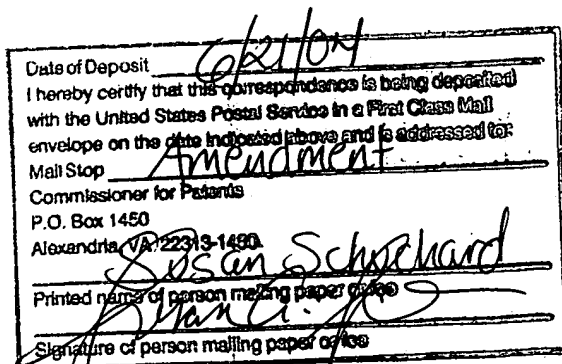 Date of Deposit 6/21/04
I hereby certify that this correspondence is being deposited
with the United States Postal Service in a First Class Mail
envelope on the date indicated above and is addressed to:
Mail Stop Amendment
Commissioner for Patents
P.O. Box 1450
Alexandria, VA 22313-1450.
Susan
Printed name of person mailing paper or fee
Signature of person mailing paper or fee